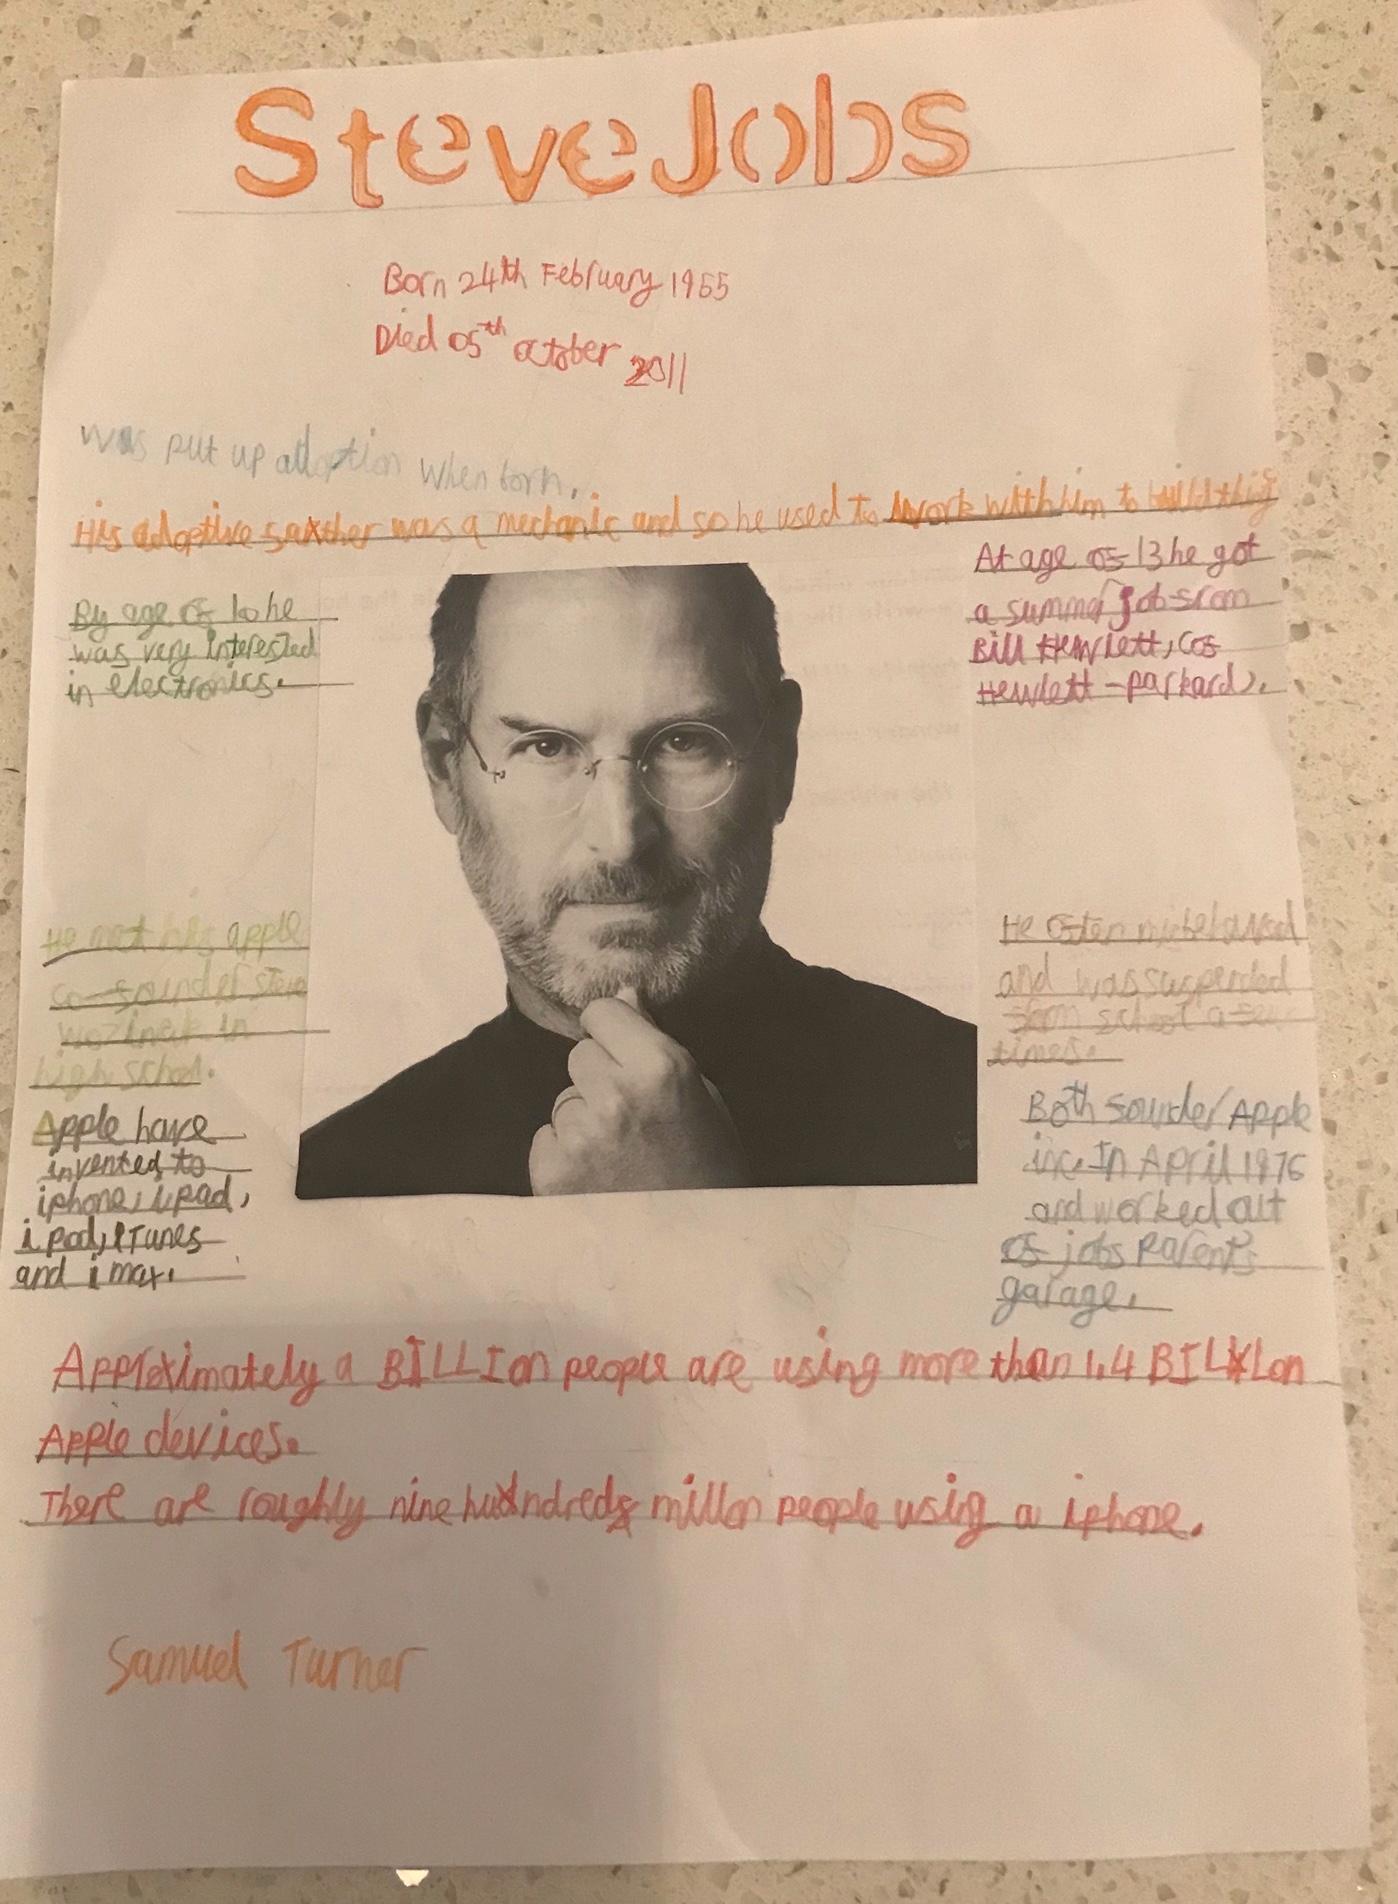 Steve Jobs
Born 24th February 1955
Died 05th october 2011
was put up adoption when born.
His adoptive father was a mechanic and so he used to work with him to build thing
By age of 10 he
was very interested
in electronics.
At age of 13 he got
a summer job from
Bill Hewlett, (of
Hewlett-parkard).
He met his apple
co-founder steve
wozineik in
high school.
He often misbehaved
and was suspended
from school a few
times.
Apple have
invented to
iphone, ipad,
ipod, iTunes
and i max.
Both founder Apple
inc. In April 1976
and worked out
of jobs Parents
garage.
Approximately a BILLIon people are using more than 1.4 BILLIon
Apple devices.
There are roughly nine hundred millon people using a iphone.
Samuel Turner